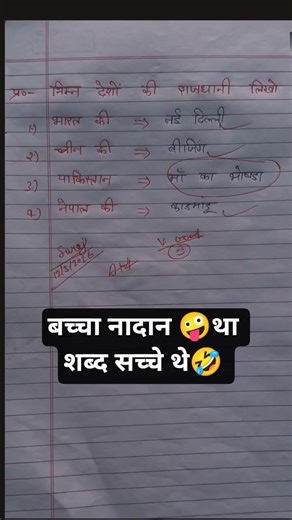 प्र०- निम्न देशों की राजधानी लिखो
1) भारत की ⇒ नई दिल्ली
2) चीन की ⇒ बीजिंग
3) पाकिस्तान ⇒ माँ का भोपड़ा
4) नेपाल की ⇒ काठमांडू
V. Good
बच्चा नादान 🤪था
शब्द सच्चे थे🤣